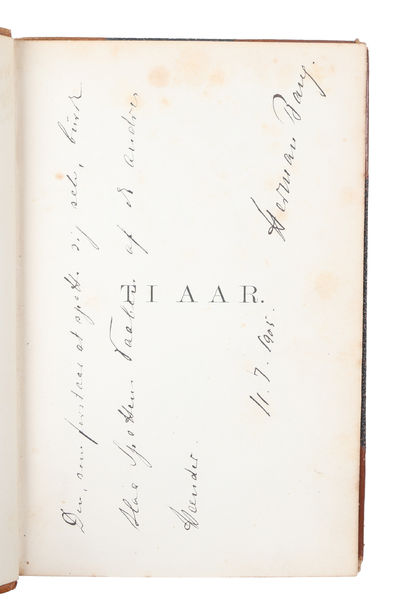 TI AAR.
Den, som forstaar at spotte sig selv,
slaa Spottens Vaaben af de andres
Hænder.
Herman Bang.
11. 7. 1905.